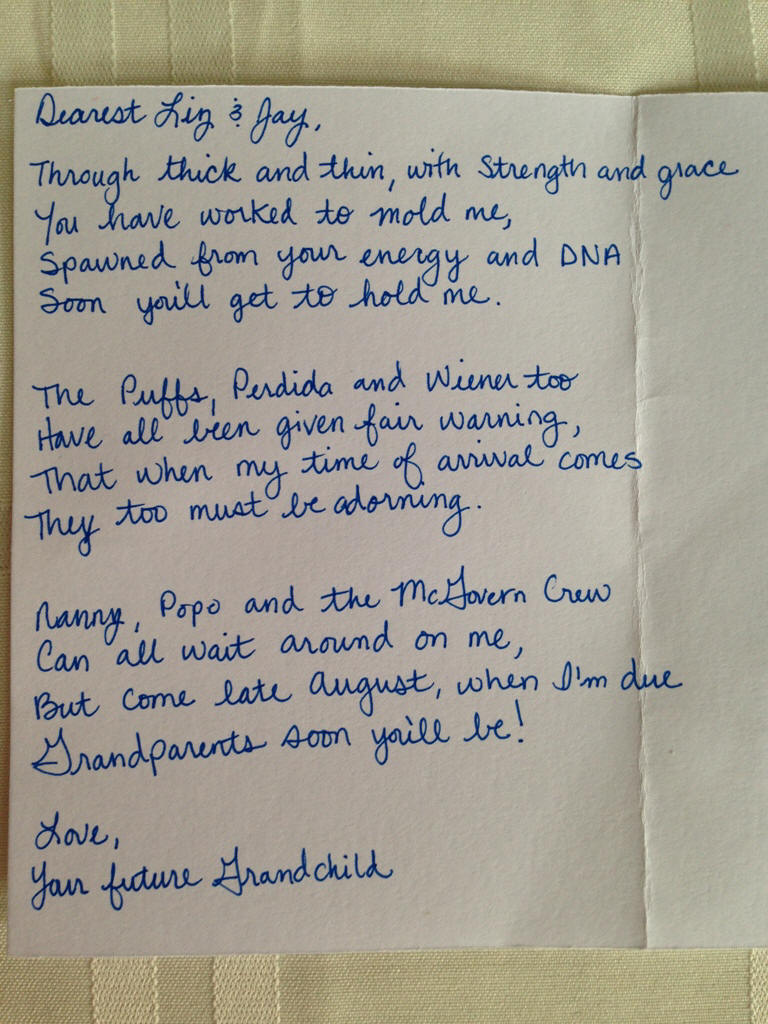 Dearest Liz & Jay,
Through thick and thin, with Strength and grace
You have worked to mold me,
Spawned from your energy and DNA
Soon you'll get to hold me.
The Puffs, Perdida and Wiener too
Have all been given fair warning,
That when my time of arrival comes
They too must be adorning.
Nanny, Popo and the McGovern Crew
Can all wait around on me,
But come late August, when I'm due
Grandparents soon you'll be!
Love,
Your future Grandchild